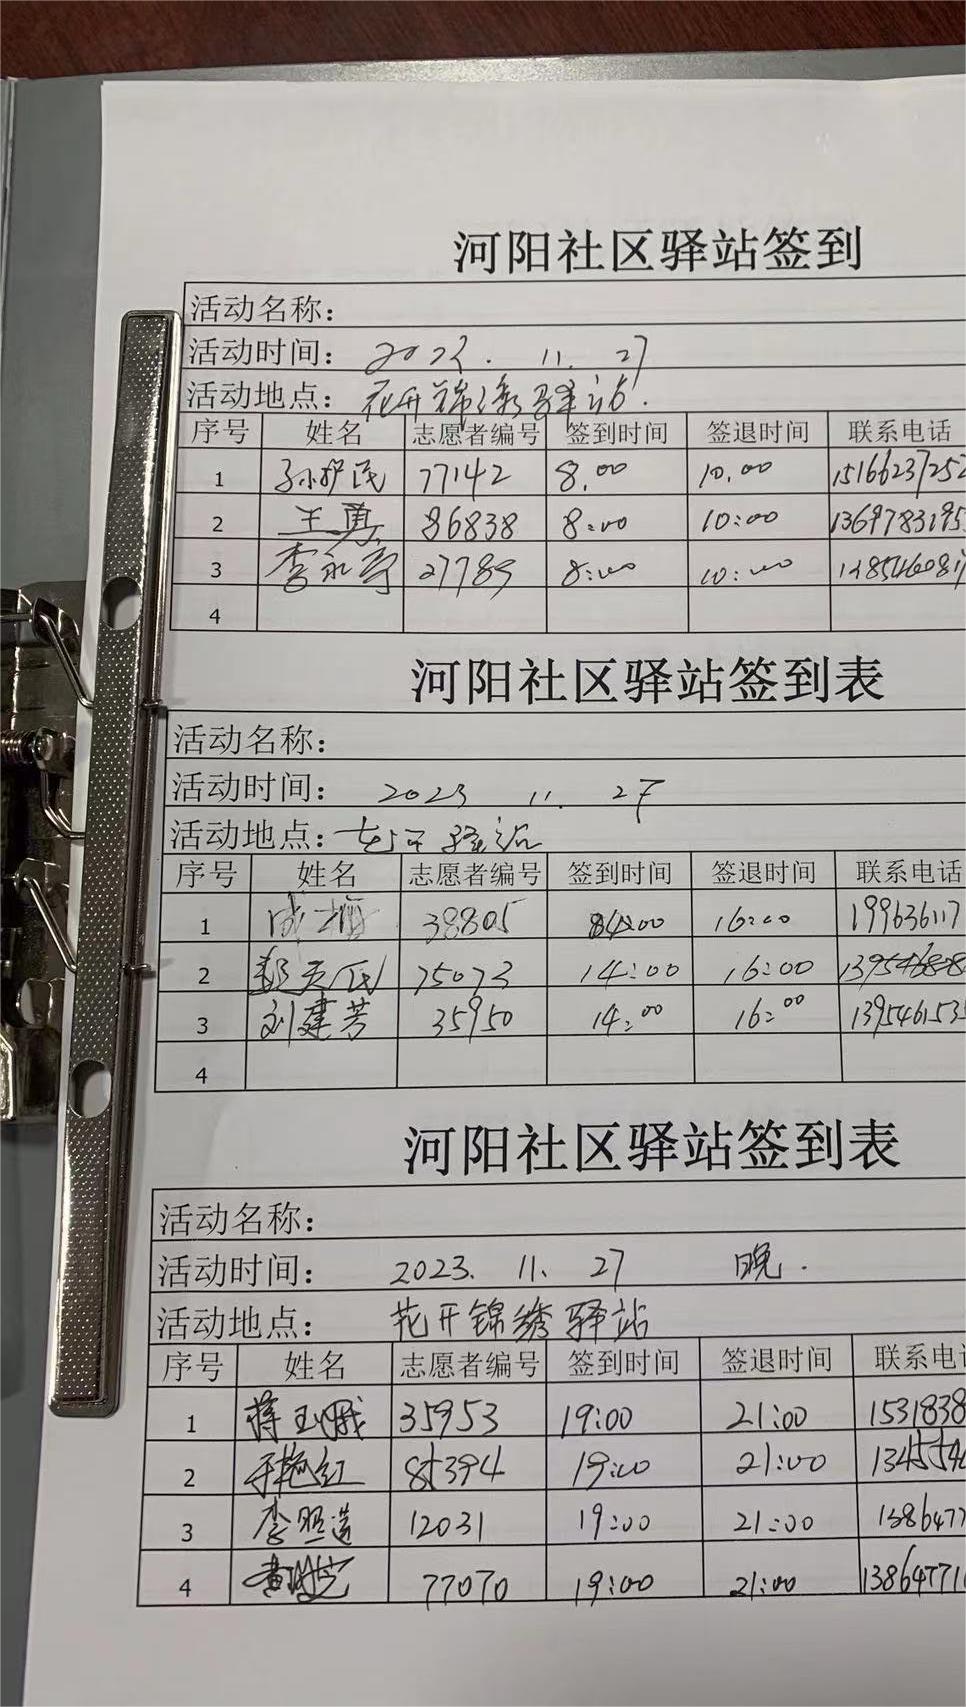 河阳社区驿站签到
活动名称：
活动时间： 2023. 11. 27
活动地点： 花开锦绣驿站.
序号 姓名 志愿者编号 签到时间 签退时间 联系电话
1 孙护民 77142 8.00 10.00 1516623725
2 王勇 86838 8:00 10:00 1369783195
3 李永奇 27789 8:00 10:00
4
河阳社区驿站签到表
活动名称：
活动时间： 2023 11. 27
活动地点： 驿站
序号 姓名 志愿者编号 签到时间 签退时间 联系电话
1 成梅 38805 14:00 16:00 199636117
2 75073 14:00 16:00 13954680
3 刘建芳 35950 14:00 16:00 139546153
4
河阳社区驿站签到表
活动名称：
活动时间： 2023. 11. 27 晚.
活动地点： 花开锦绣驿站
序号 姓名 志愿者编号 签到时间 签退时间 联系电
1 蒋玉娥 35953 19:00 21:00 1531838
2 于艳红 85394 19:00 21:00 134554
3 李照莲 12031 19:00 21:00 1386477
4 77070 19:00 21:00 13864771